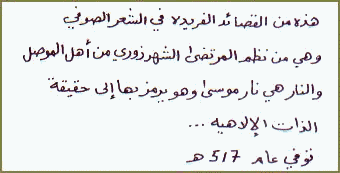 هذه من القصائد الفريدة في الشعر الصوفي
وهي من نظم المرتضى الشهرزوري من أهل الموصل
والنار هي نار موسى وهو يرمز بها إلى حقيقة
الذات الإلاهيه ...
توفي عام 517 هـ